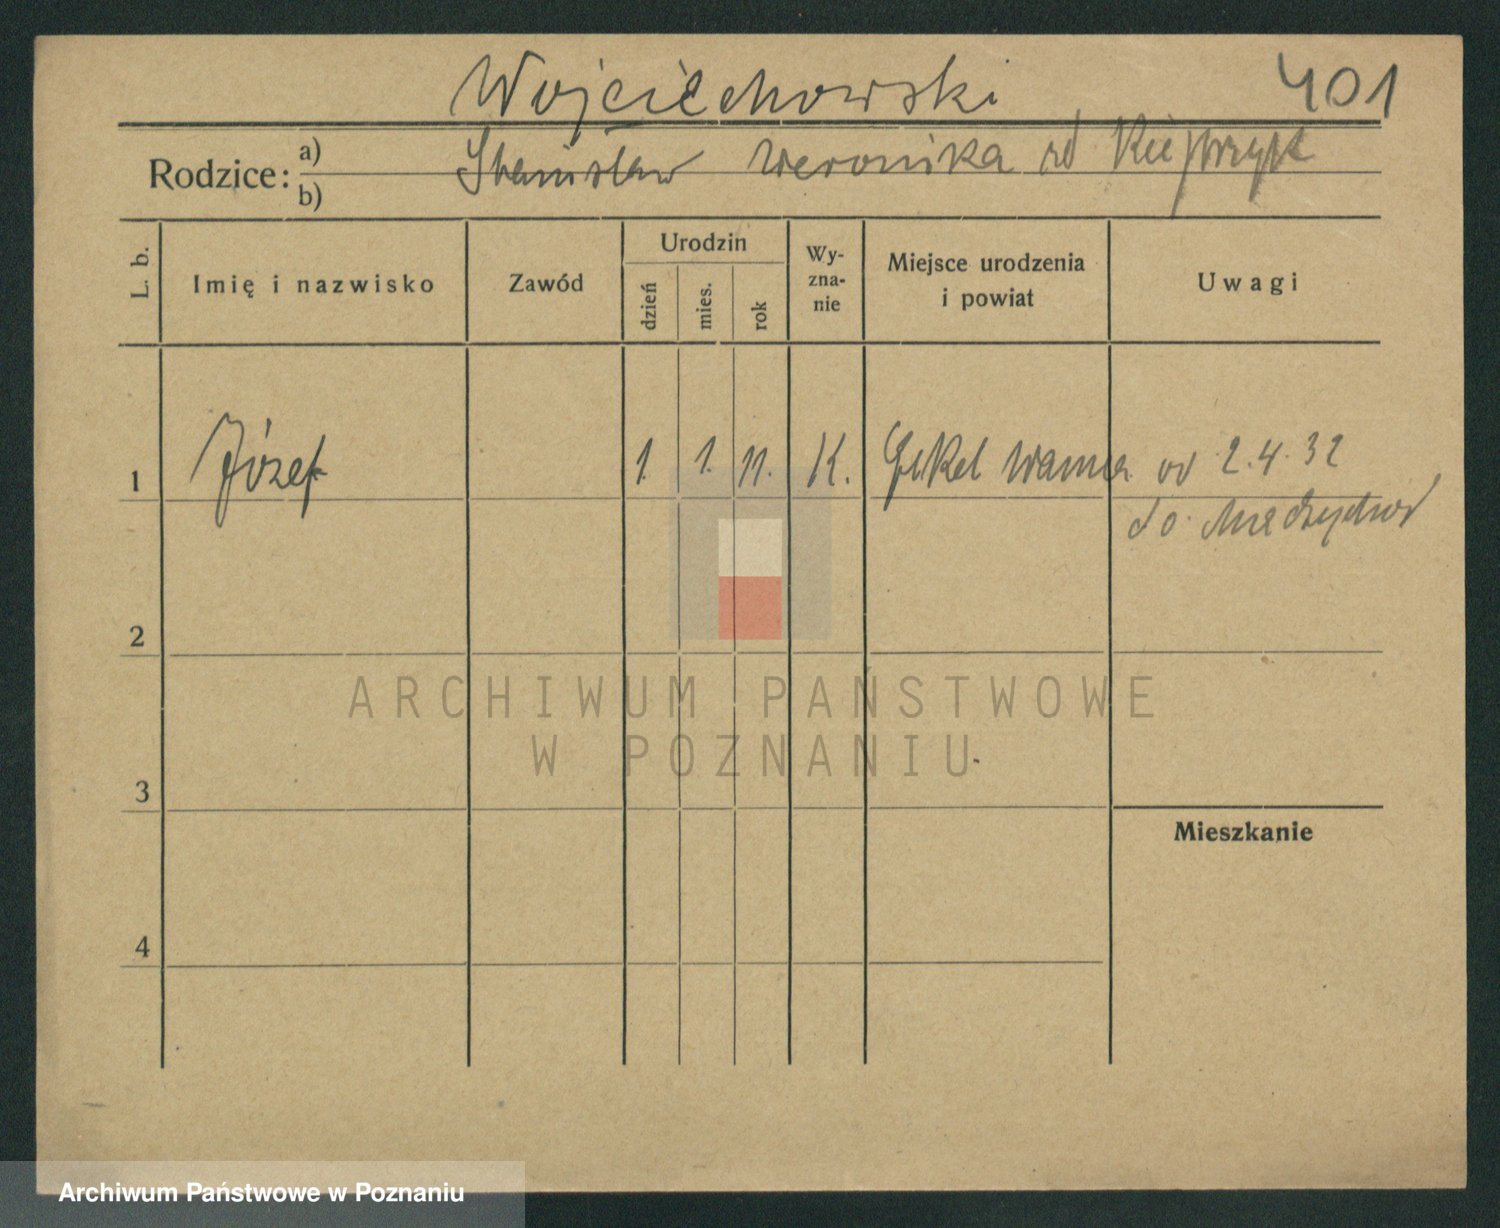 Wojciechowski 401
Rodzice: a) b) Stanisław Weronika
L. b.
Imię i nazwisko
Zawód
Urodzin
dzień
mies.
rok
Wy-
zna-
nie
Miejsce urodzenia
i powiat
Uwagi
1 Józef 1. 1. 11. K. od 2.4.32
do
2
3
4
Mieszkanie
ARCHIWUM PAŃSTWOWE
W POZNANIU
Archiwum Państwowe w Poznaniu